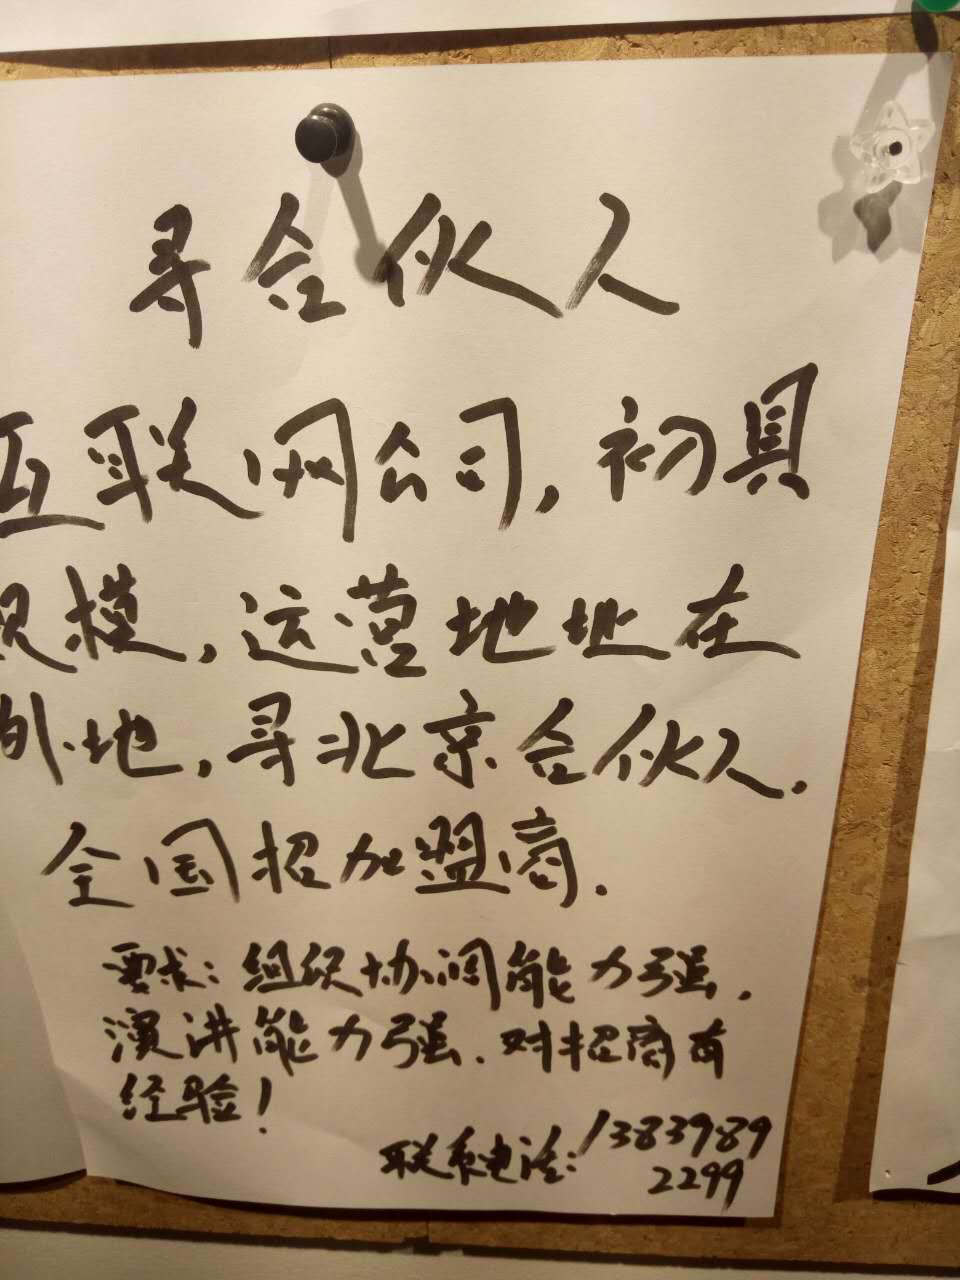 寻合伙人
互联网公司，初具
规模，运营地址在
外地，寻北京合伙人.
全国招加盟商.
要求：组织协调能力强.
演讲能力强.对招商有
经验！
联系电话：13839892299